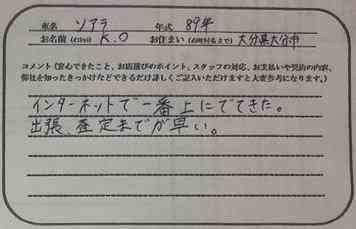 車名 ソアラ 年式 89年
お名前(イニシャル) K.O お住まい(市町村名まで) 大分県大分市
コメント(安心できたこと、お店選びのポイント、スタッフの対応、お支払いや契約の内容、
弊社を知ったきっかけなどできるだけ詳しくご記入いただけますと大変参考になります。)
インターネットで一番上にでてきた。
出張、査定までが早い。